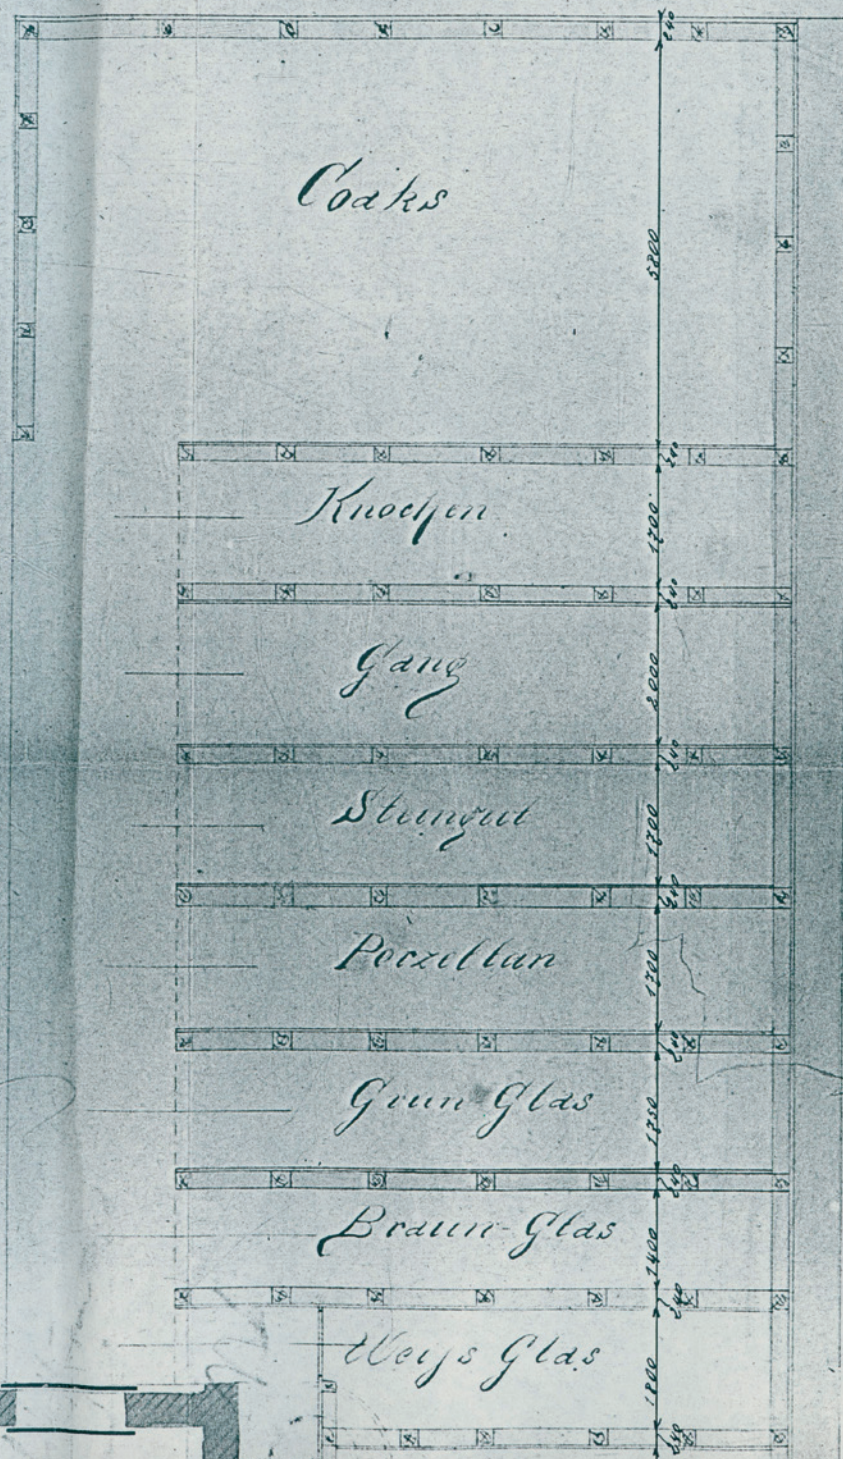 240
Coaks
5800
240
Knochen
1700
240
Gang
2000
240
Steingut
1700
240
Porzellan
1700
240
Grün Glas
1750
240
Braun-Glas
1400
240
Weiss Glas
1800
240